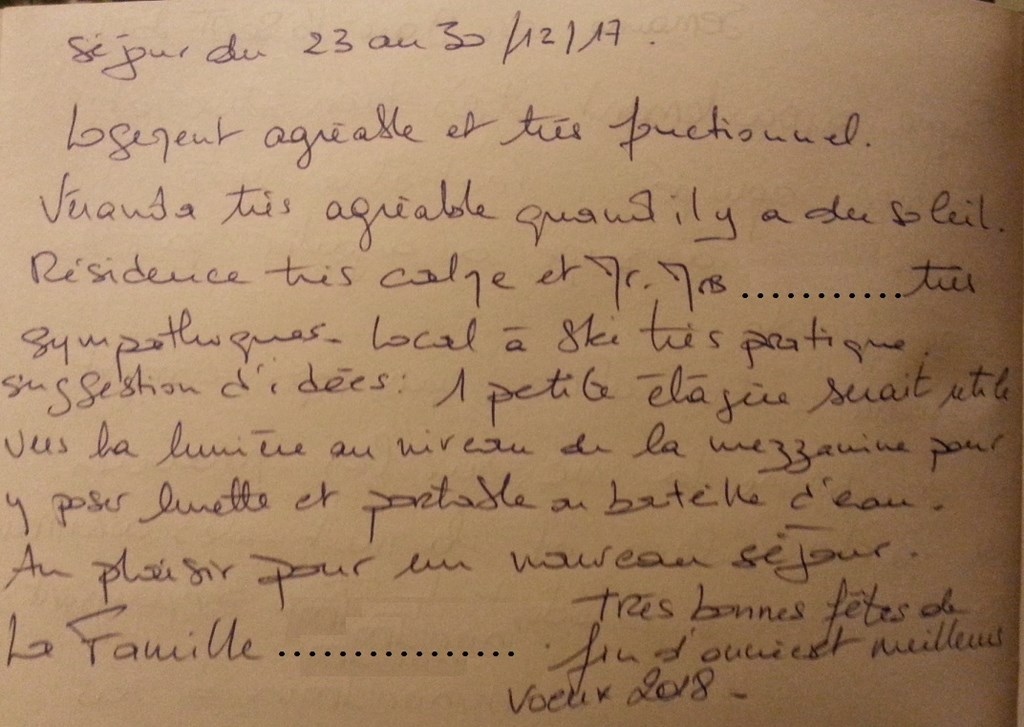 Séjour du 23 au 30/12/17.
Logement agréable et très fonctionnel.
Véranda très agréable quand il y a du soleil.
Résidence très calme et Mr. Mme ............ très
sympathiques. Local à ski très pratique.
suggestion d'idées: 1 petite étagère serait utile
vers la lumière au niveau de la mezzanine pour
y poser lunette et portable ou bouteille d'eau.
Au plaisir pour un nouveau séjour.
La Famille ................
Très bonnes fêtes de
fin d'année et meilleurs
voeux 2018 -